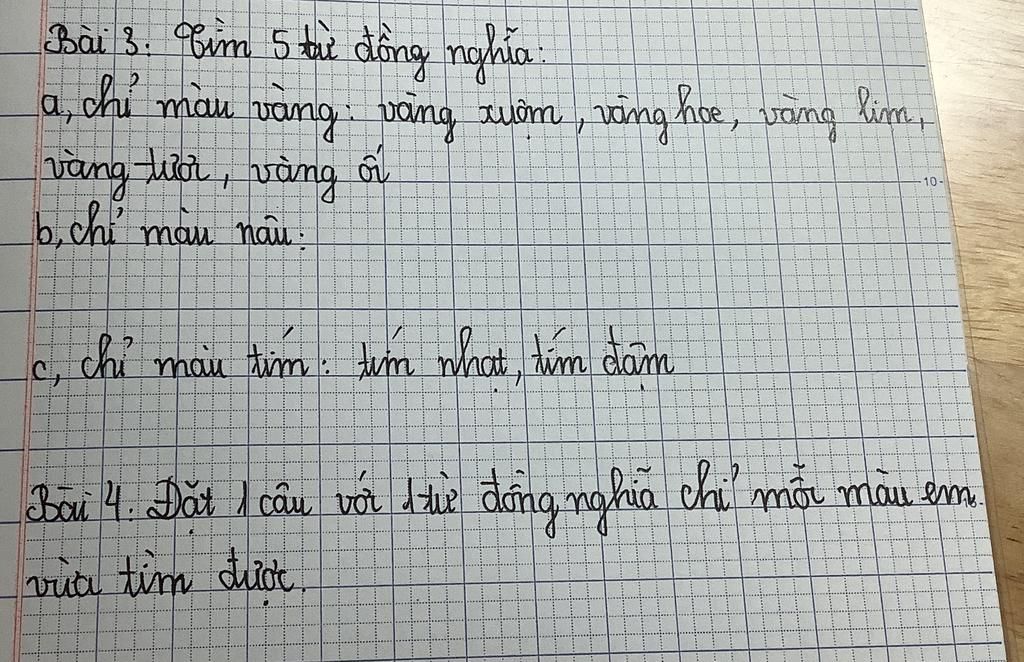 Bài 3. Tìm 5 từ đồng nghĩa:
a, chỉ màu vàng: vàng xuộm, vàng hoe, vàng lịm,
vàng tươi, vàng ối
10
b, chỉ màu nâu:
c, chỉ màu tím: tím nhạt, tím đậm
Bài 4. Đặt 1 câu với 1 từ đồng nghĩa chỉ mỗi màu em
vừa tìm được.